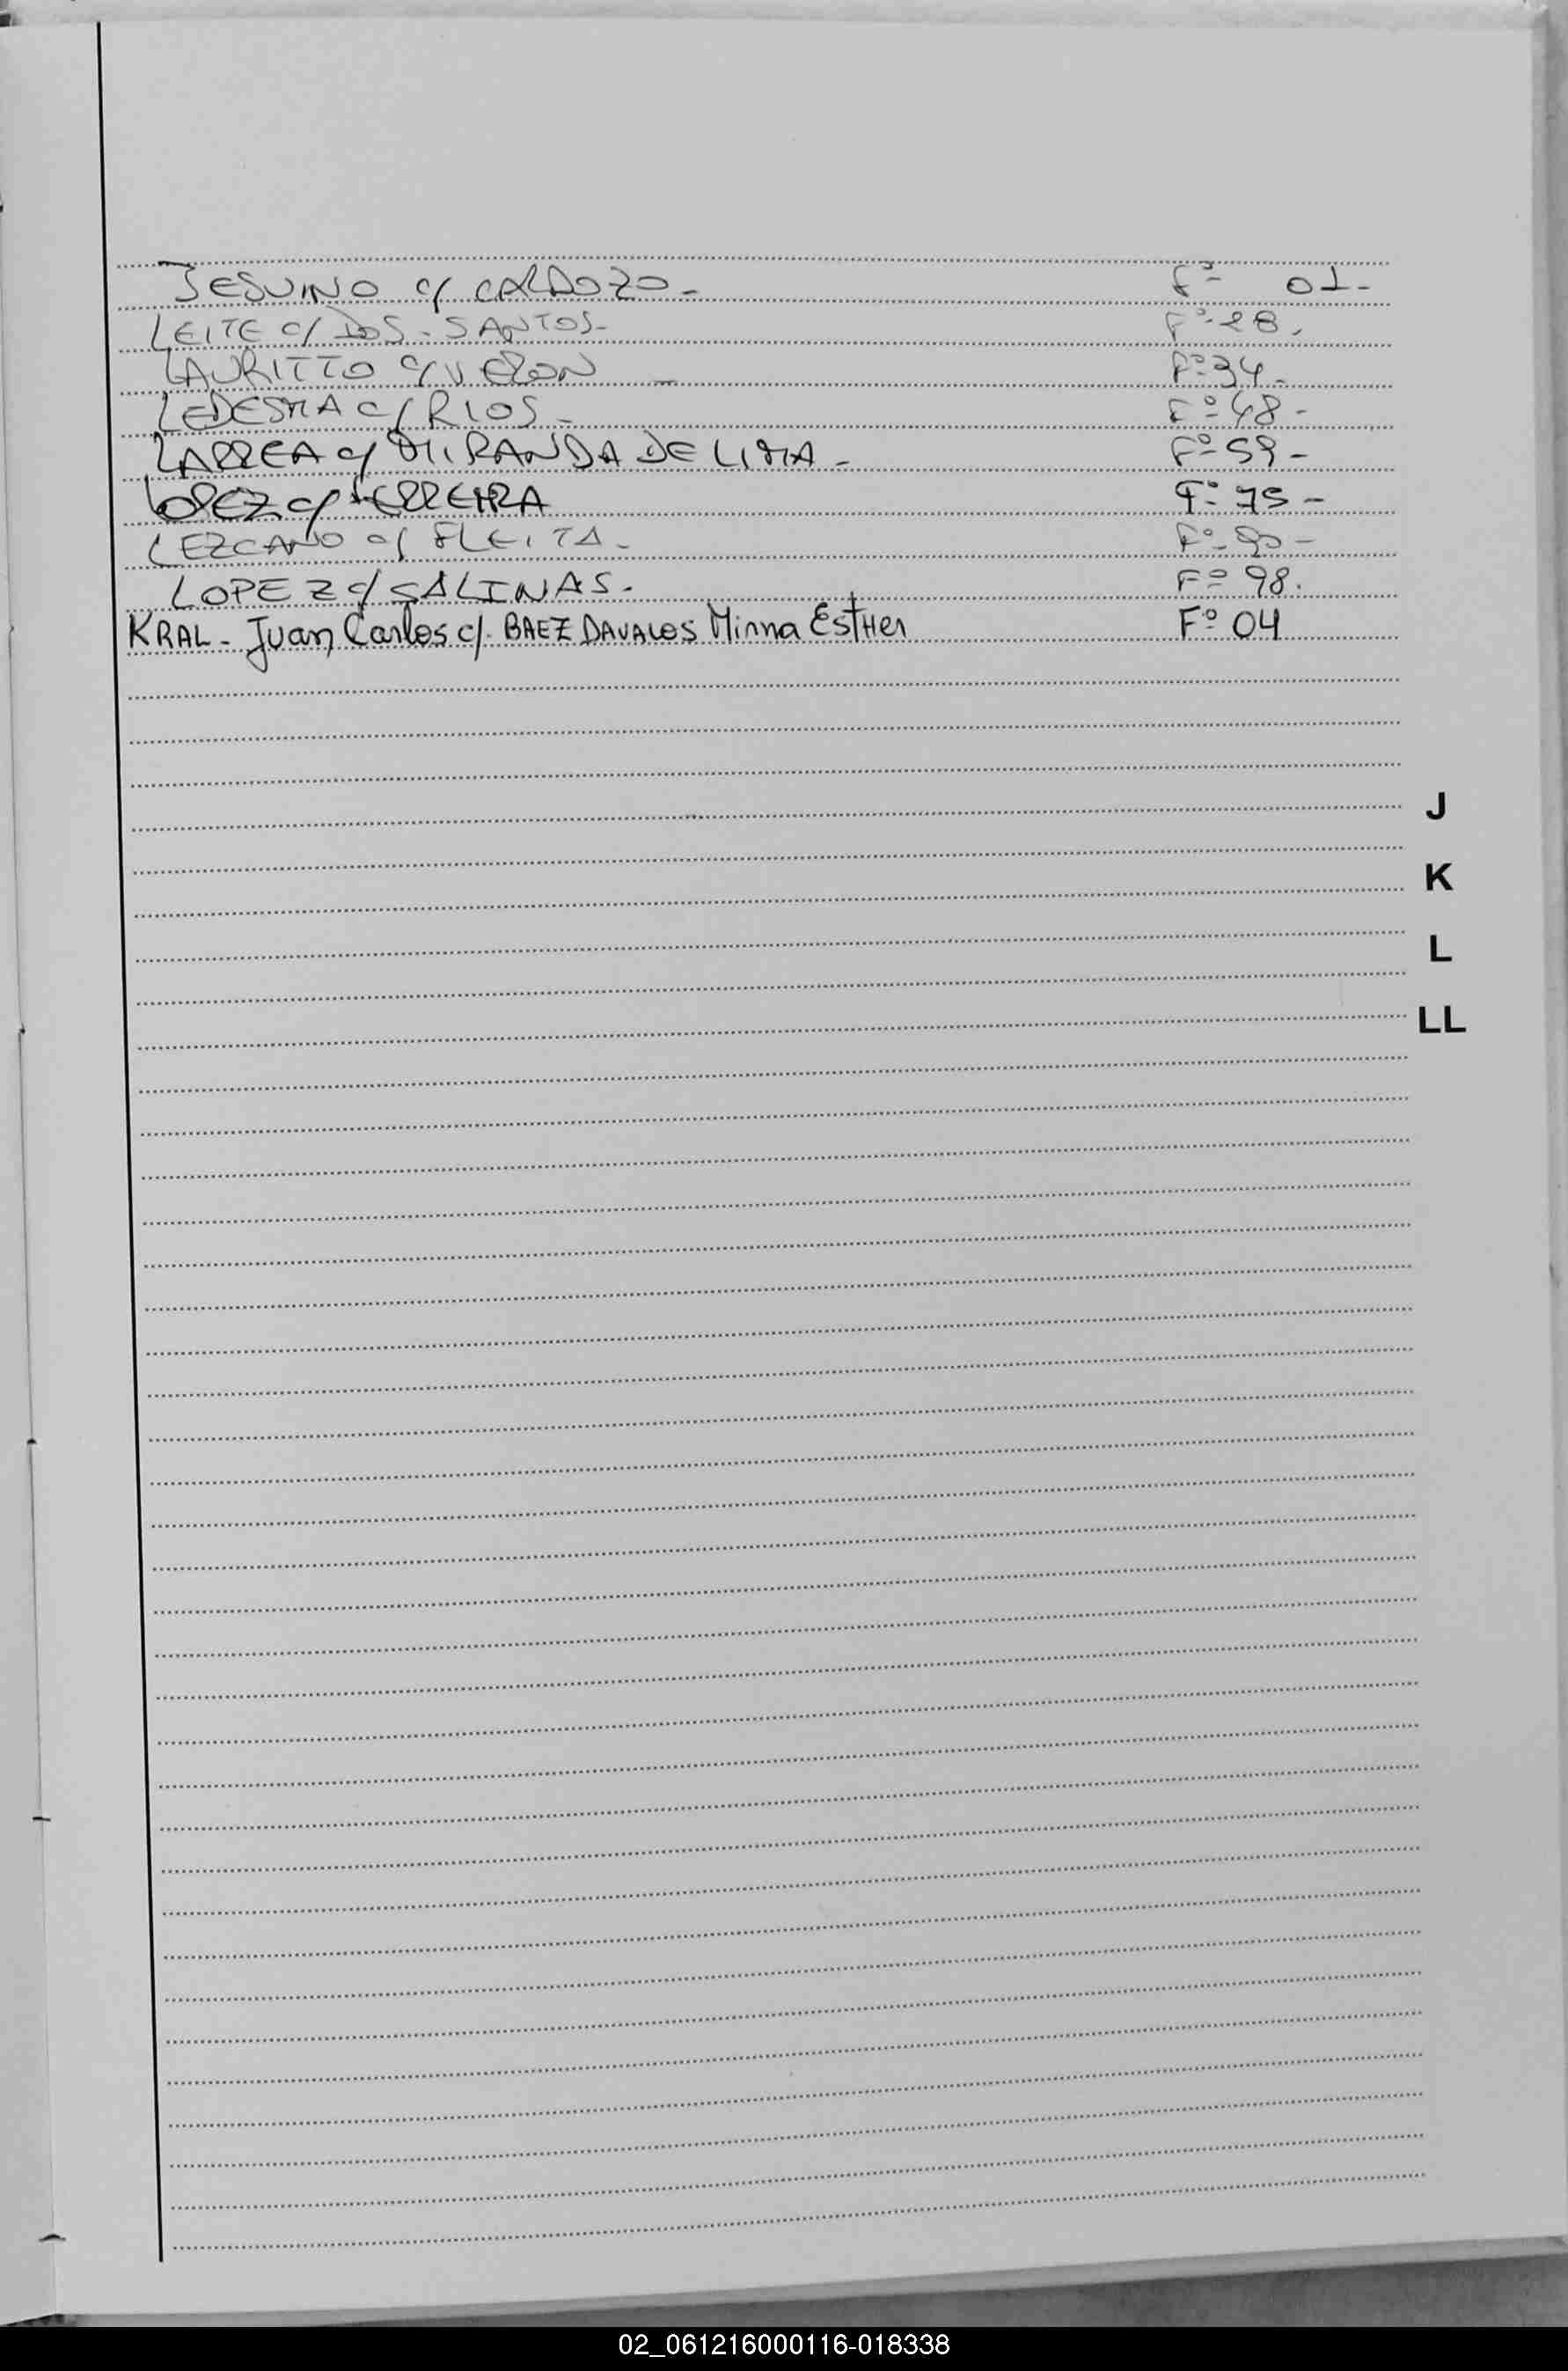 JESUINO c/ CARDOZO.- Fº- 01-
LEITE c/ DOS-SANTOS- Fº- 28.
LAURITTO c/ VERON - Fº- 34-
LEDESMA c/ RIOS- Fº- 48-
LARREA c/ MIRANDA DE LIMA- Fº- 59-
LOPEZ c/ FERREIRA Fº- 75-
LEZCANO c/ FLEITA- Fº- 90-
LOPEZ c/ SALINAS. Fº 98.
KRAL - Juan Carlos c/. BAEZ DAVALOS Mirna EsTHer Fº 04
J
K
L
LL
02_061216000116-018338